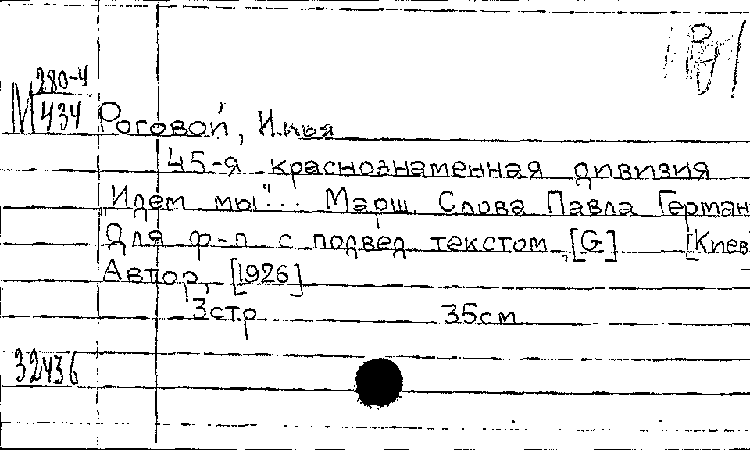 М 280-4
434
Роговой, Илья
45-я краснознаменная дивизия
"Идем мы"... Марш. Слова Павла Герман
Для ф-п. с подвед. текстом, [G] [Киев]
Автор, [1926]
3 стр 35см
32436